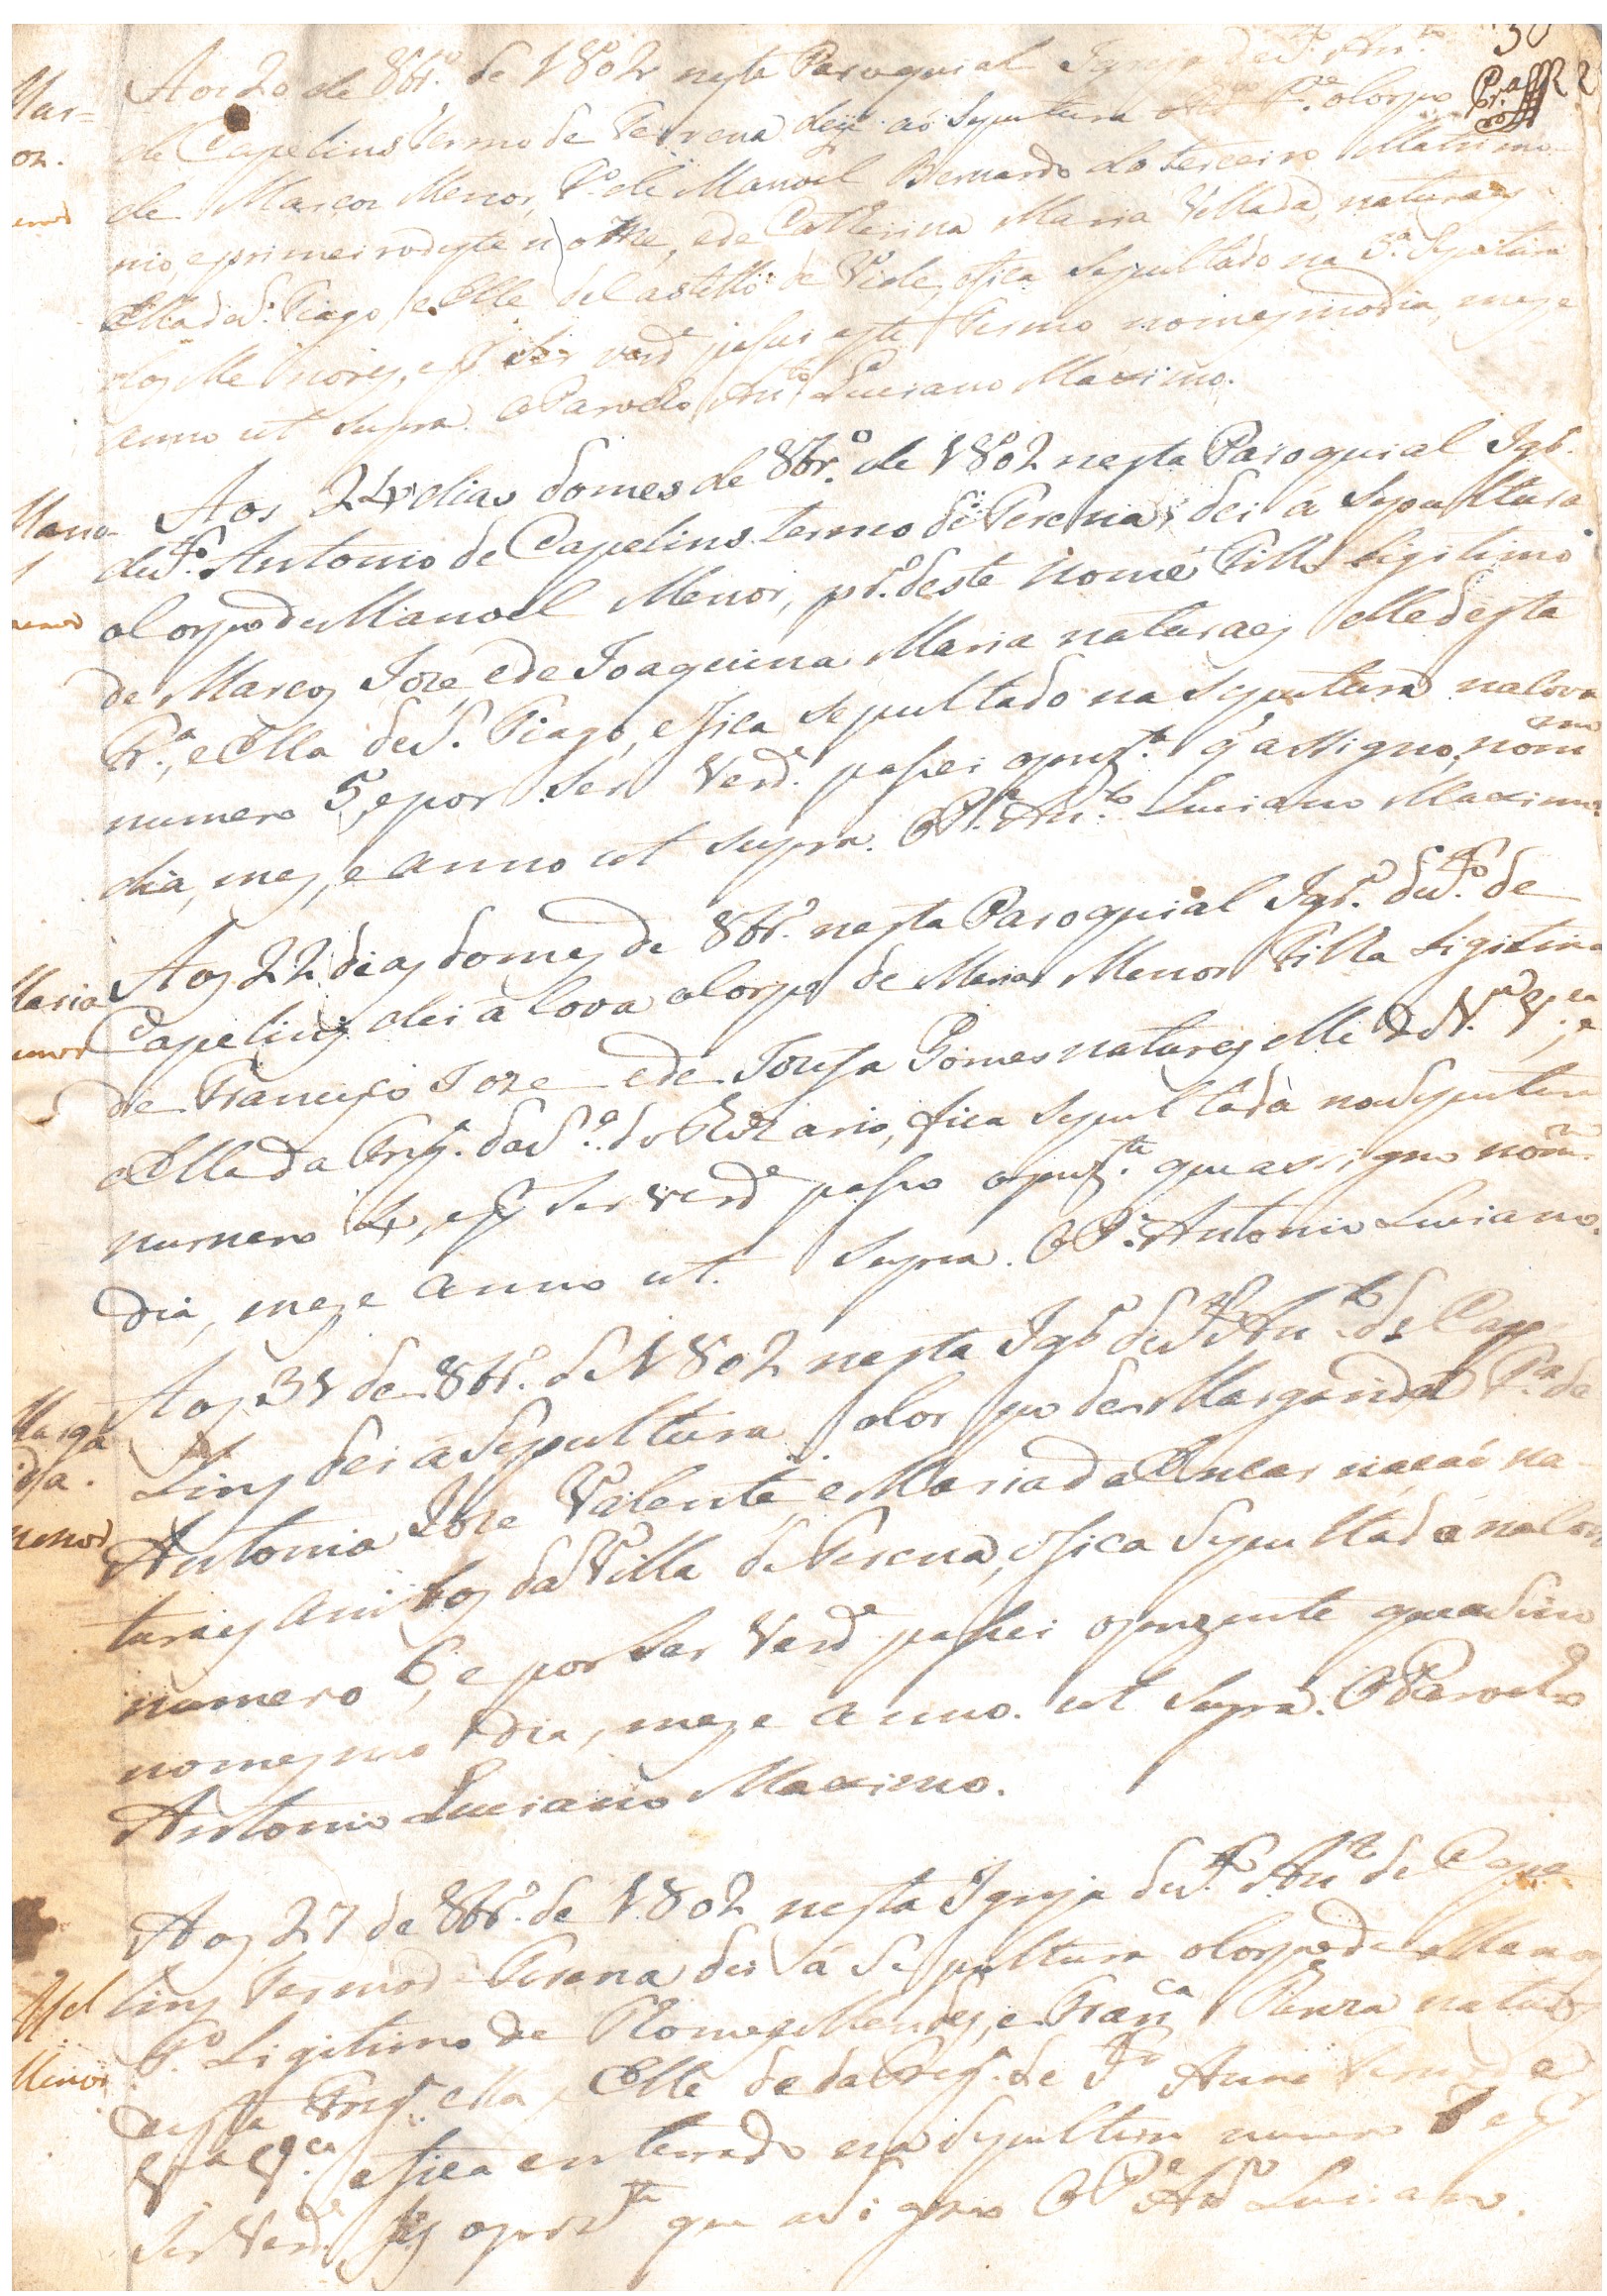 30
Aos 20 de 8br.º de 1802 nesta Paroquial Igreja de S.to An.to
Mar=
de Capelins termo de Terena dei á sepultura o corpo
cos.
de Marcos Menor, F.º de Manoel Bernardo do terceiro Matrimo
menor
nio, e primeiro deste nome, e de Catherina Maria Vellada, naturaes
Ella de S. Tiago, e Elle de Castello de Vide, e fica sepultado na 3.ª Sepultura
dos Menores, e p.r ser verd.e passei este Termo, no mesmo dia, mez e
anno ut supra. O Parocho An.to Luciano Maximo.
Aos 24 dias do mes de 8br.º de 1802 nesta Paroquial Igr.ª
Mano
de S.to Antonio de Capelins termo de Terena, dei á Sepultura
el
o Corpo de Manoel Menor, pr.º deste nome Filho Ligitimo
menor
de Marcos Joze, e de Joaquina Maria naturaes elle desta
Fr.ª, e Ella de S. Tiago, e fica sepultado na sepultura na Cova
numero 5, e por ser verd.e passei o prez.te q' assigno, no mm.º
dia, mez, e anno ut supra. O P.e An.to Luciano Maximo.
Aos 22 dias do mes de 8br.º nesta Paroquial Igr.ª de S.to de
Maria
Capelins dei á Cova o Corpo de Maria Menor Filha Ligitima
menor
de Francisco Joze e de Jozefa Gomes naturaes elle de V.ª V.ca, e
Ella da Freg.ª da S.ra do Rozario, fica sepultada na Sepultura
numero 4, e p.r ser verd.e passo o prez.te que assigno no mm.º
dia, mez e anno ut supra. O P.e Antonio Luciano.
Aos 31 de 8br.º de 1802 nesta Igr.ª de S.to An.to de Cape
Marga
lins dei á Sepultura o Corpo de Margarida F.ª de
rida.
Antonio Joze Valente e Maria da Encarnação na-
menor
turaes ambos da Villa de Terena, e fica Sepultada na Cova
numero 6, e por ser verd.e passei o prezente que assino
no mesmo dia, mez e anno ut supra. O Parocho
Antonio Luciano Maximo.
Aos 27 de 8br.º de 1802 nesta Igreja de S.to An.to de Cape
lins Termo de Terena dei á Sepultura o Corpo de Mano
el
F.º Ligitimo de Mendes, e Fran.ca naturaes
Menor
desta Freg.ª ella, Elle da Freg.ª de S.ta Anna termo de
V.ª V.ca e fica enterrado na Sepultura numero e p.r
ser verd.e fis o prez.te que asigno O P.e An.to Luciano.